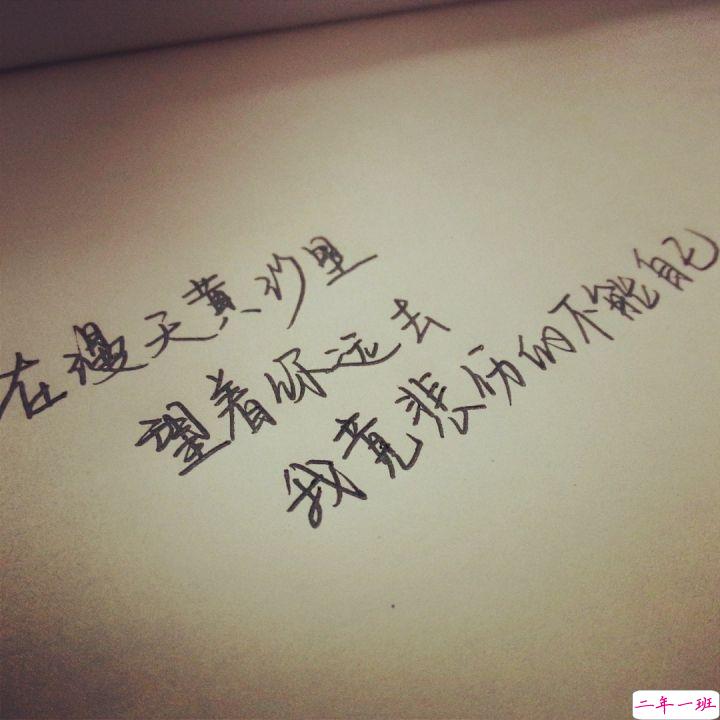 在漫天黄沙里
望着你远去
我竟悲伤的不能自已
二年一班